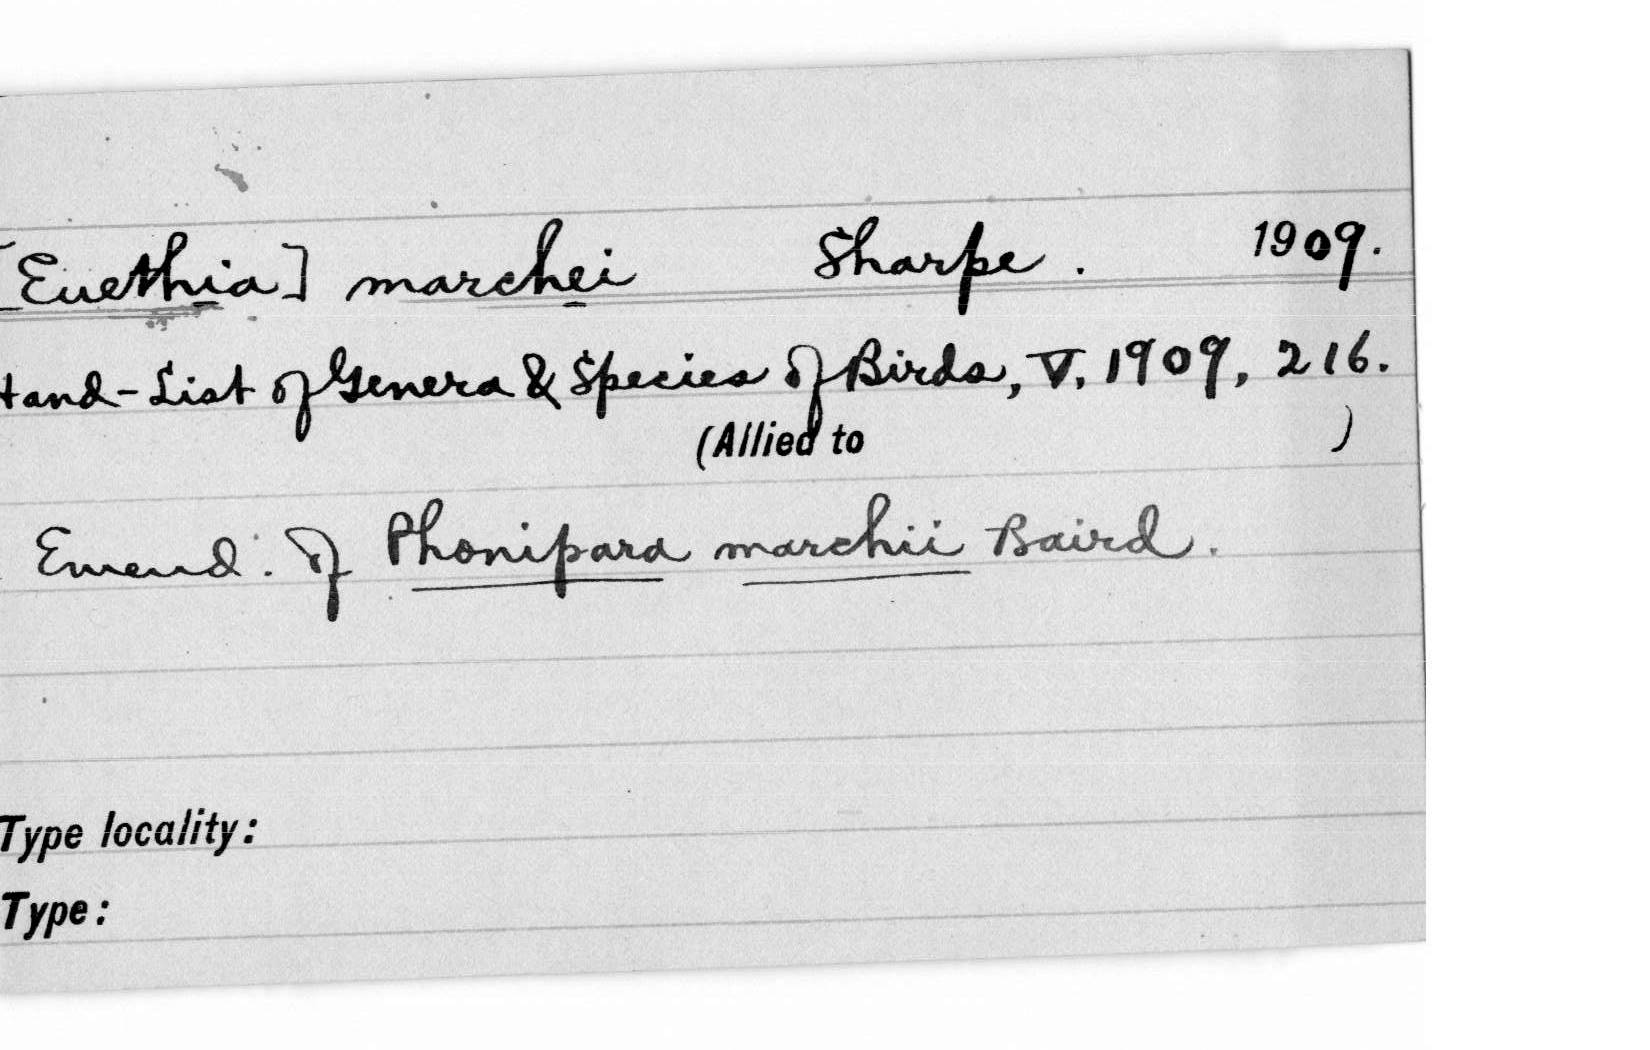 [Euethia] marchei Sharpe. 1909.
Hand-List of Genera & Species of Birds, V, 1909, 216.
(Allied to )
Emend. of Phonipara marchii Baird.
Type locality:
Type: